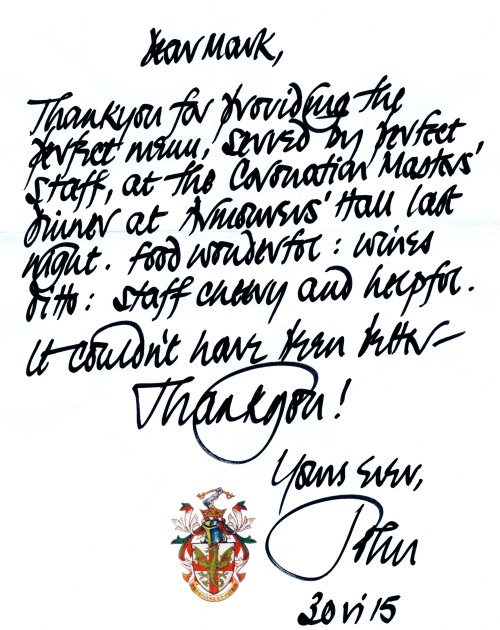 Dear Mark,
Thankyou for providing the
perfect menu, served by perfect
staff, at the Coronation Masters'
Dinner at Armourers' Hall last
night. Food wonderful: wines
ditto: staff cheery and helpful.
It couldn't have been better—
Thankyou!
Yours ever,
John
30 vi 15